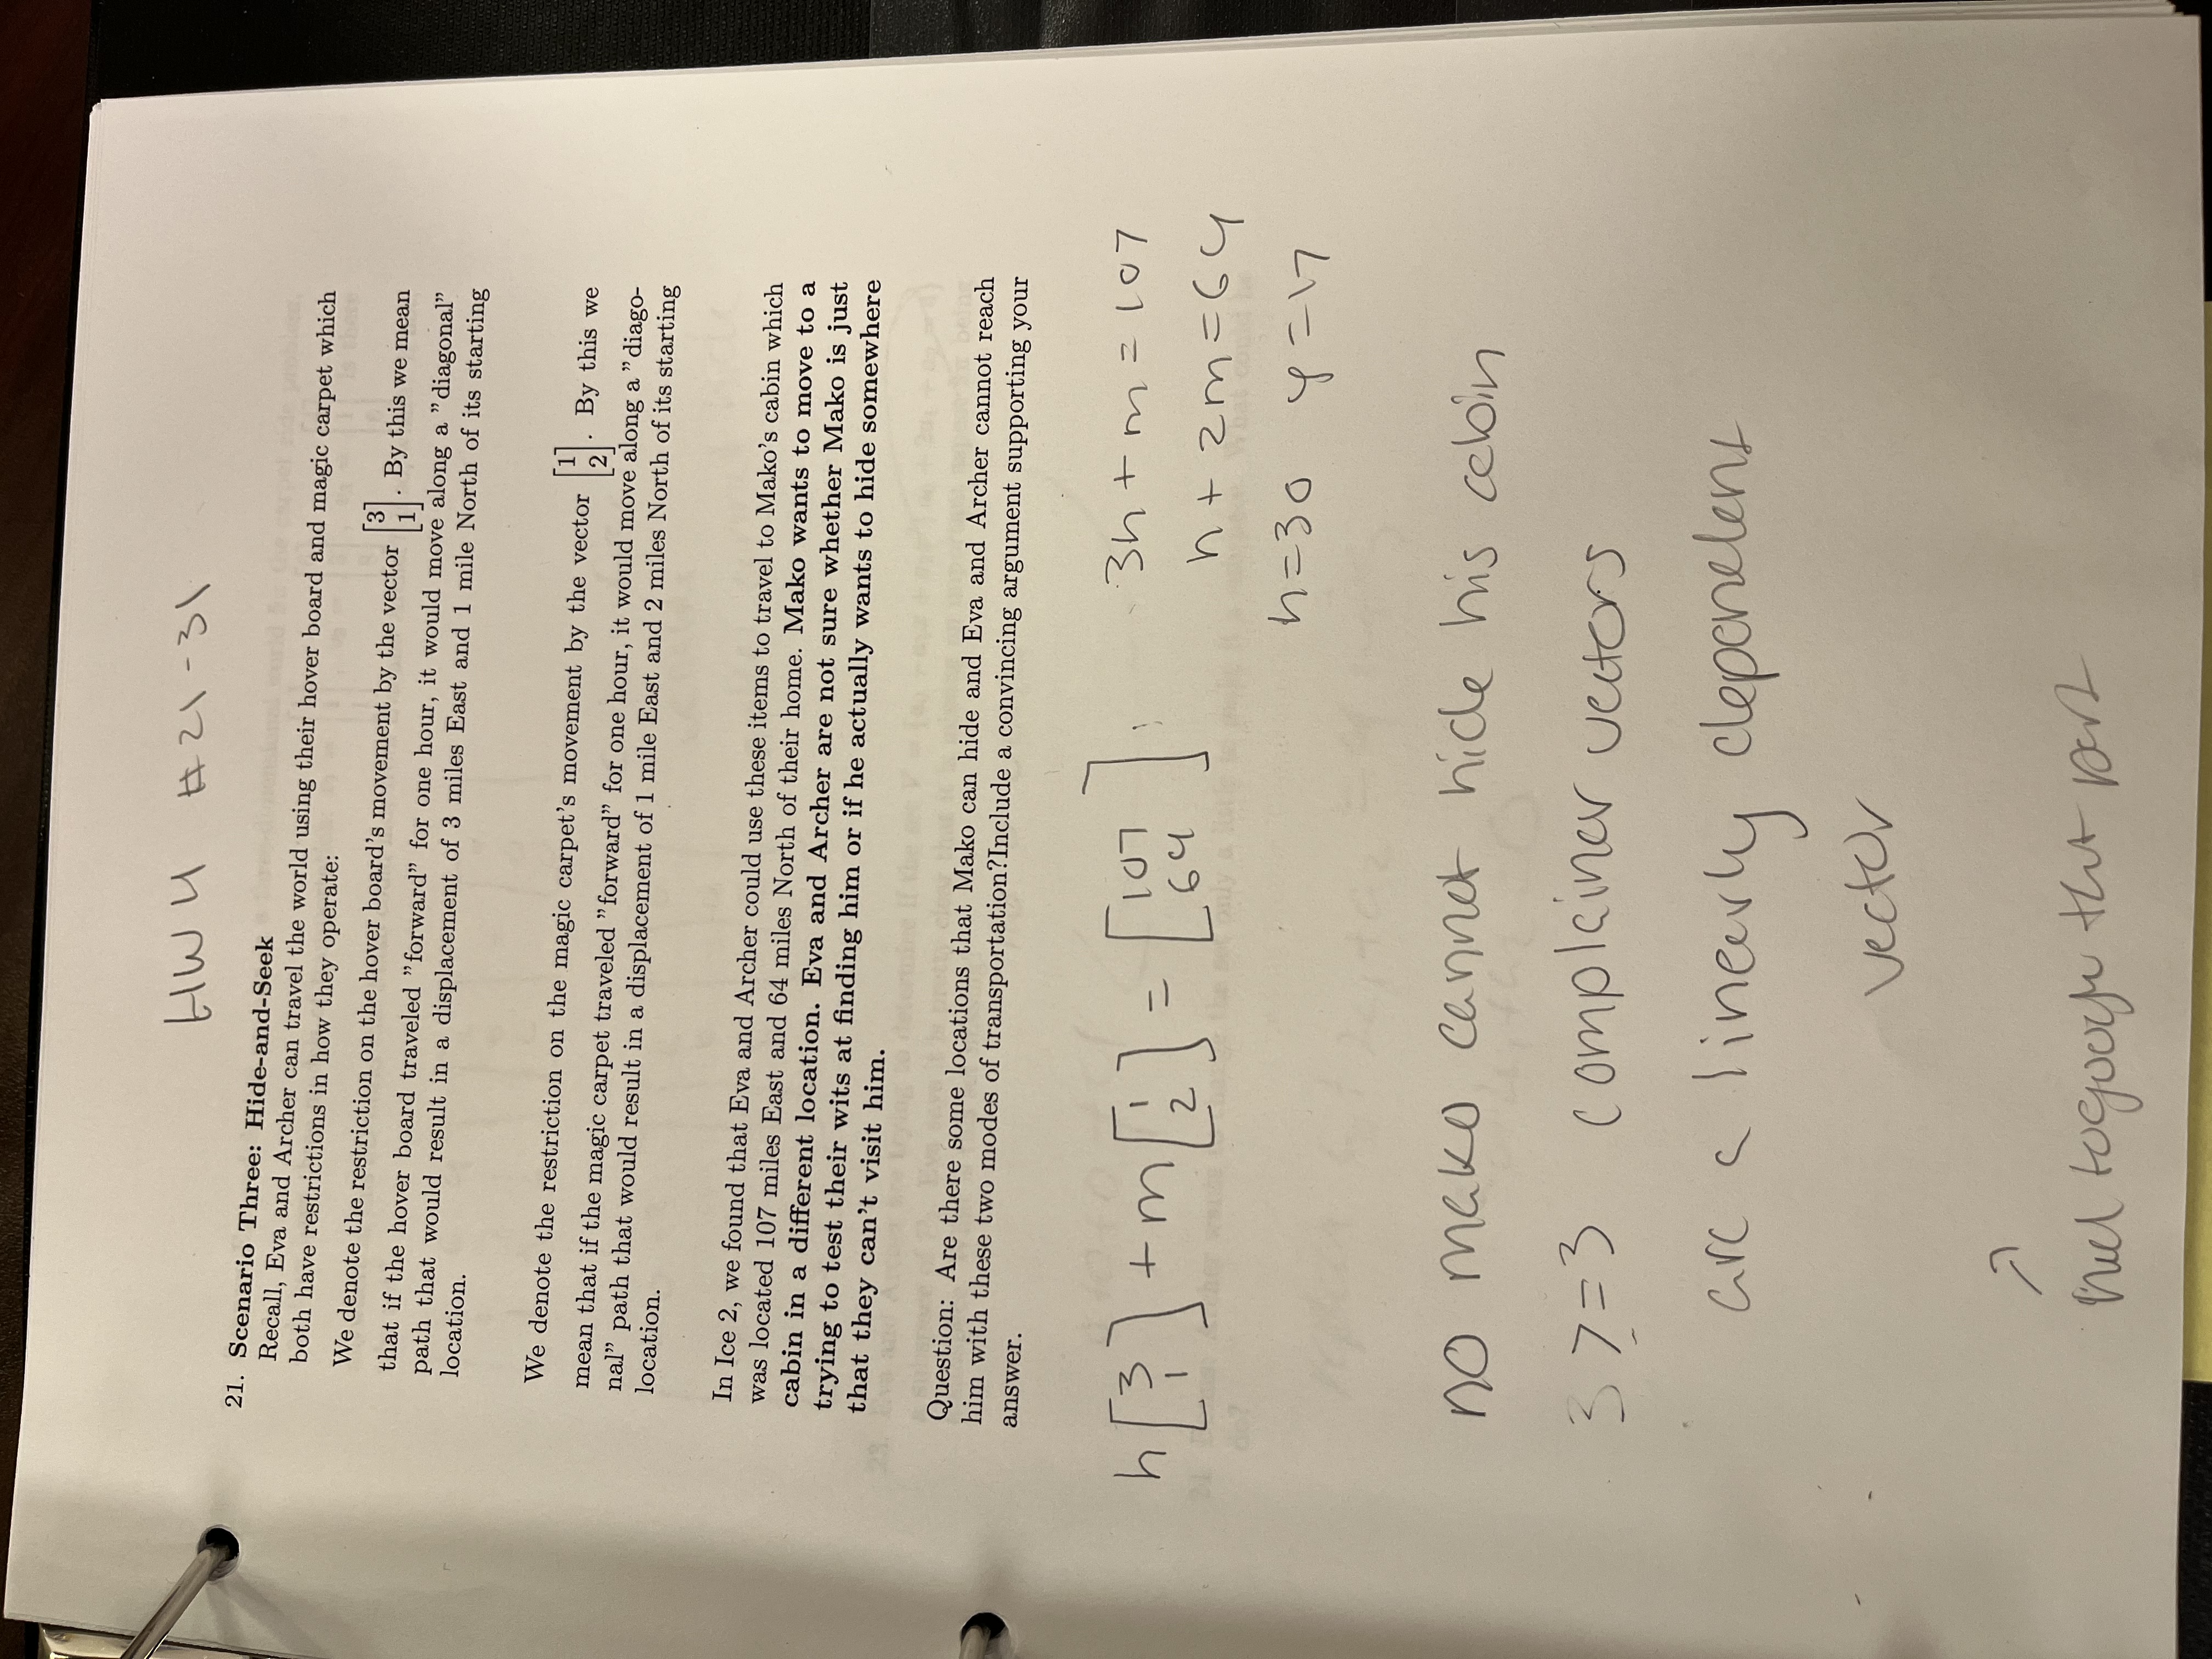 HW 4 #21-31
21. Scenario Three: Hide-and-Seek
Recall, Eva and Archer can travel the world using their hover board and magic carpet which
both have restrictions in how they operate:
We denote the restriction on the hover board's movement by the vector [3 1]. By this we mean
that if the hover board traveled "forward" for one hour, it would move along a "diagonal"
path that would result in a displacement of 3 miles East and 1 mile North of its starting
location.
We denote the restriction on the magic carpet's movement by the vector [1 2]. By this we
mean that if the magic carpet traveled "forward" for one hour, it would move along a "diago-
nal" path that would result in a displacement of 1 mile East and 2 miles North of its starting
location.
In Ice 2, we found that Eva and Archer could use these items to travel to Mako's cabin which
was located 107 miles East and 64 miles North of their home. Mako wants to move to a
cabin in a different location. Eva and Archer are not sure whether Mako is just
trying to test their wits at finding him or if he actually wants to hide somewhere
that they can't visit him.
Question: Are there some locations that Mako can hide and Eva and Archer cannot reach
him with these two modes of transportation?Include a convincing argument supporting your
answer.
h[3 1] + m[1 2] = [107 64]
3h + m = 107
h + 2m = 64
h=30 y=17
no mako cannot hide his cabin
3 >= 3 complainer vectors
are a linearly dependent
vector
need to google that part